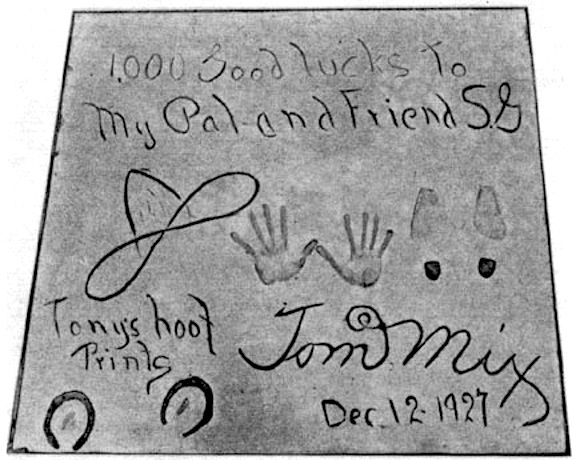 1,000 Good lucks To
My Pal and Friend S.G
Tonys hoof
Prints
Tom Mix
Dec. 12-1927